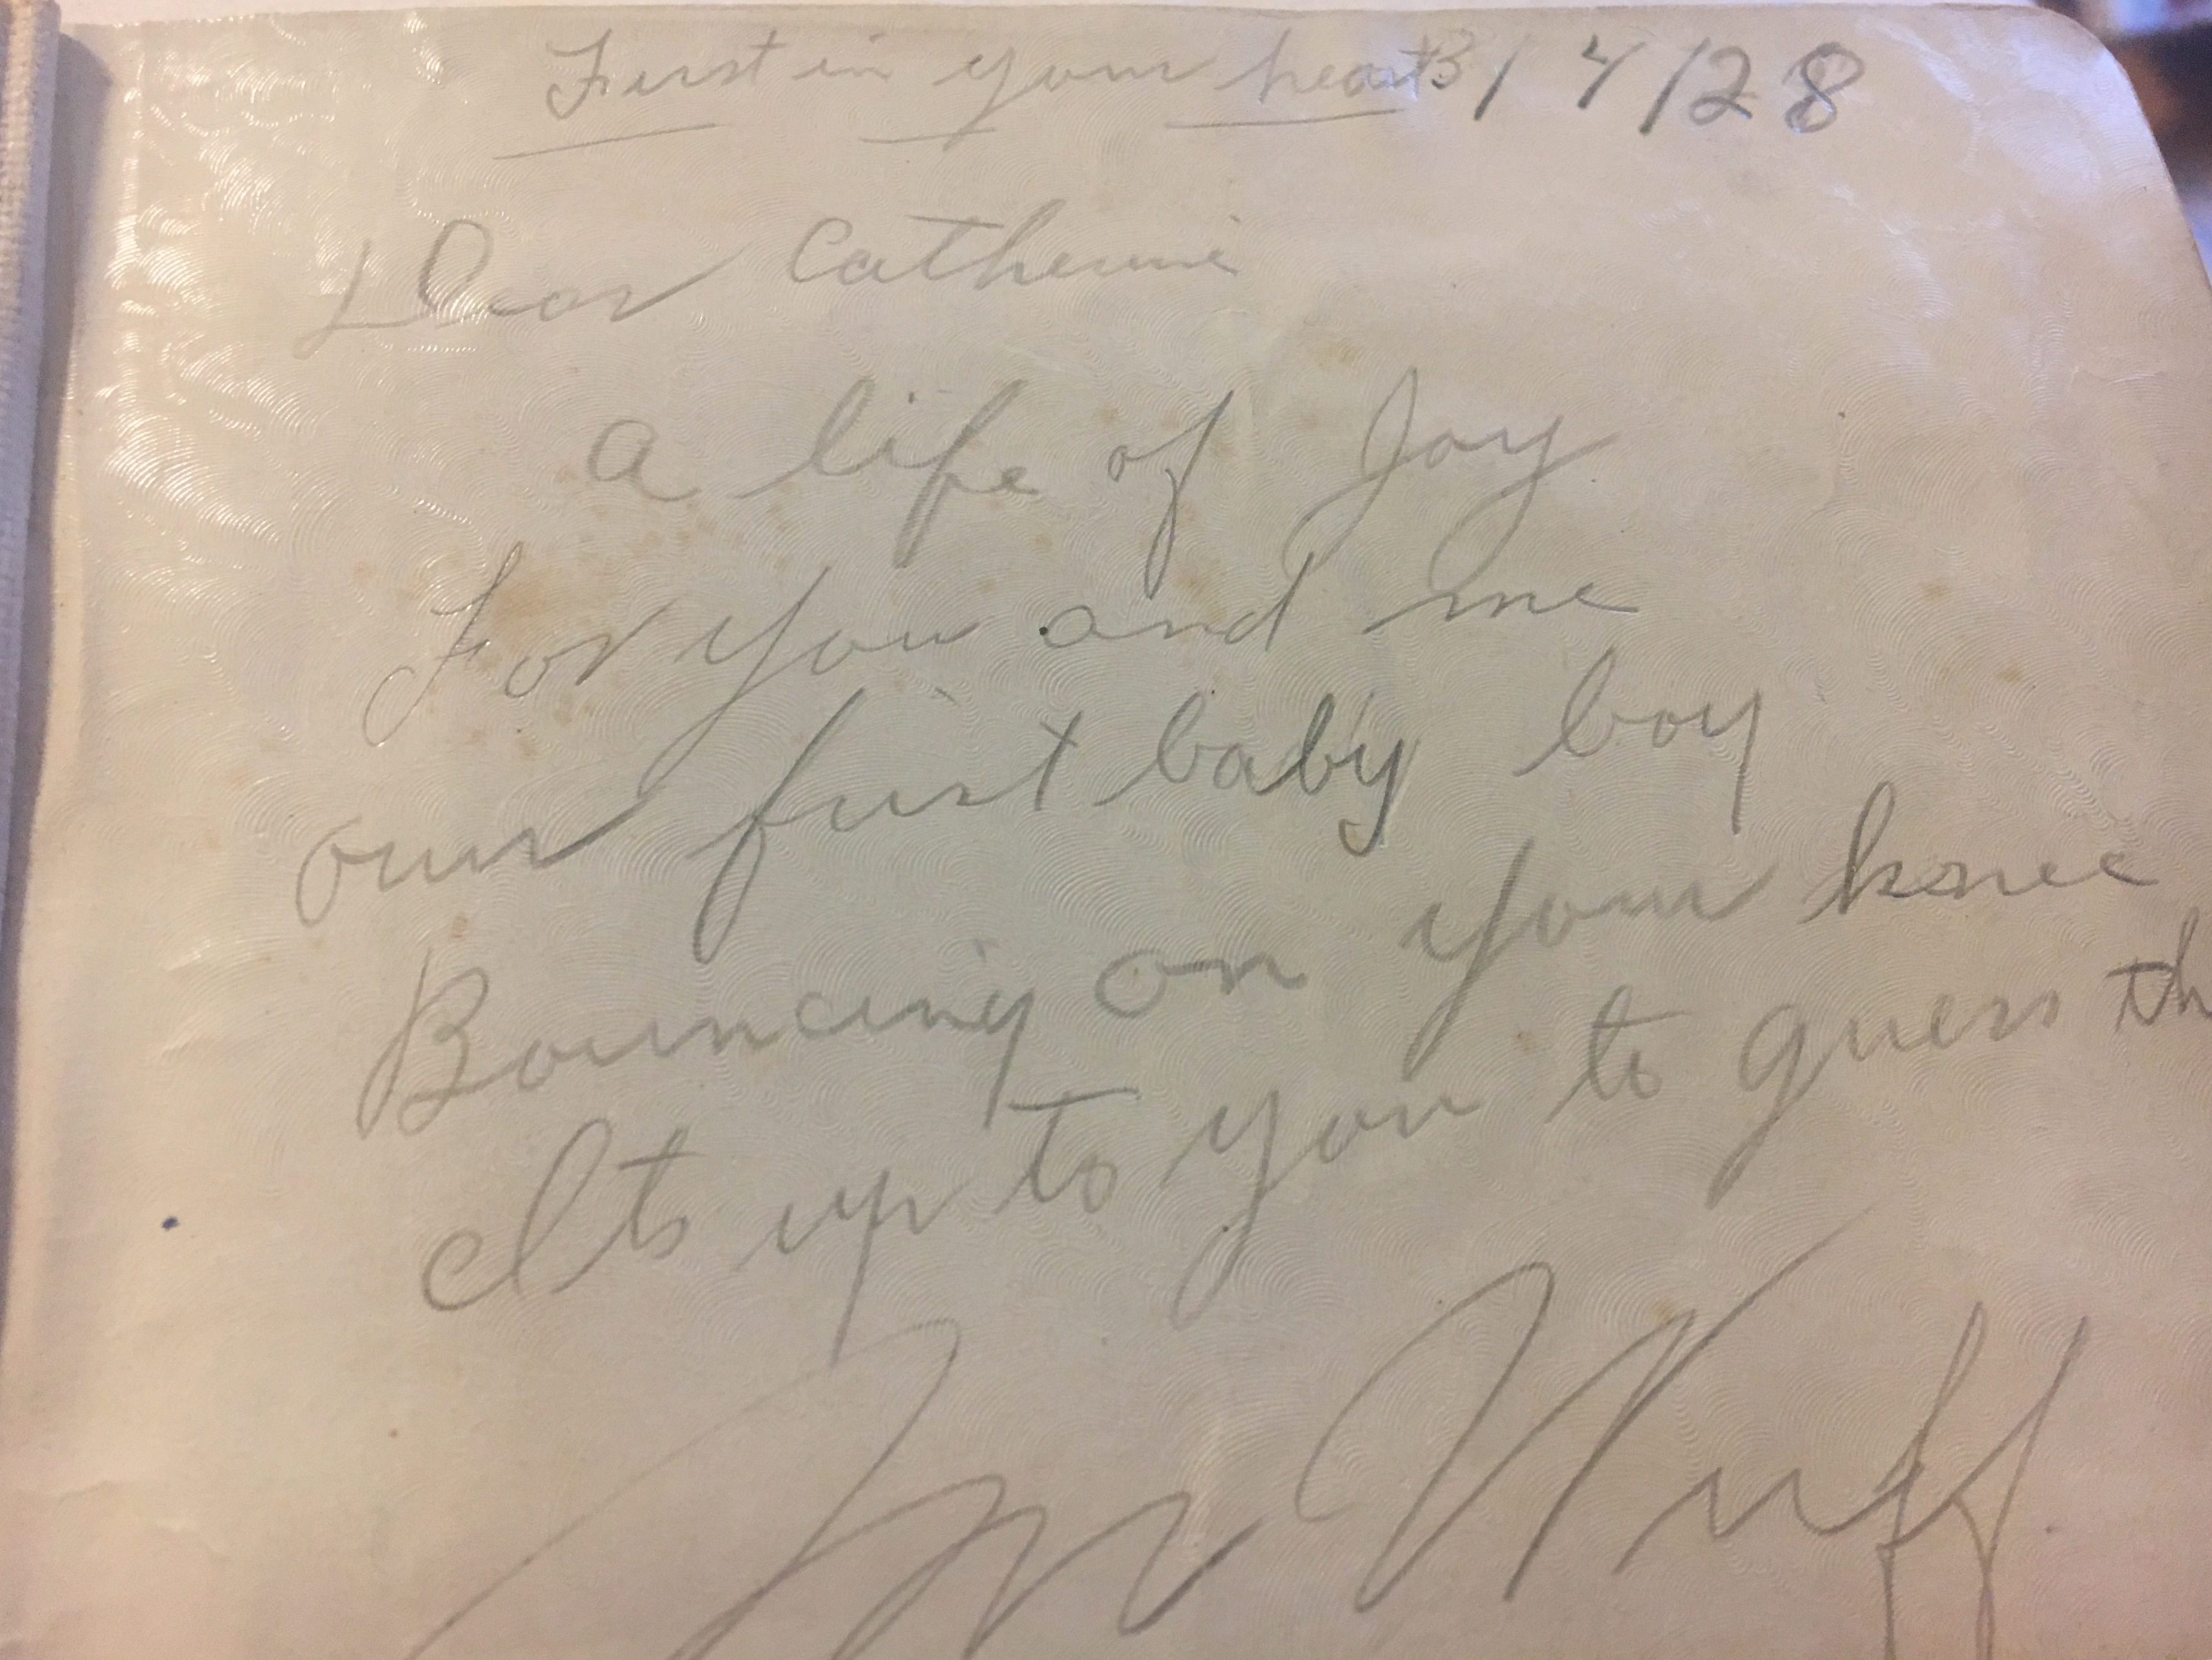 First in your heart 3/4/28
Dear Catherine
a life of Joy
For you and me
our first baby boy
Bouncing on your knee
Its up to you to guess th
Huff